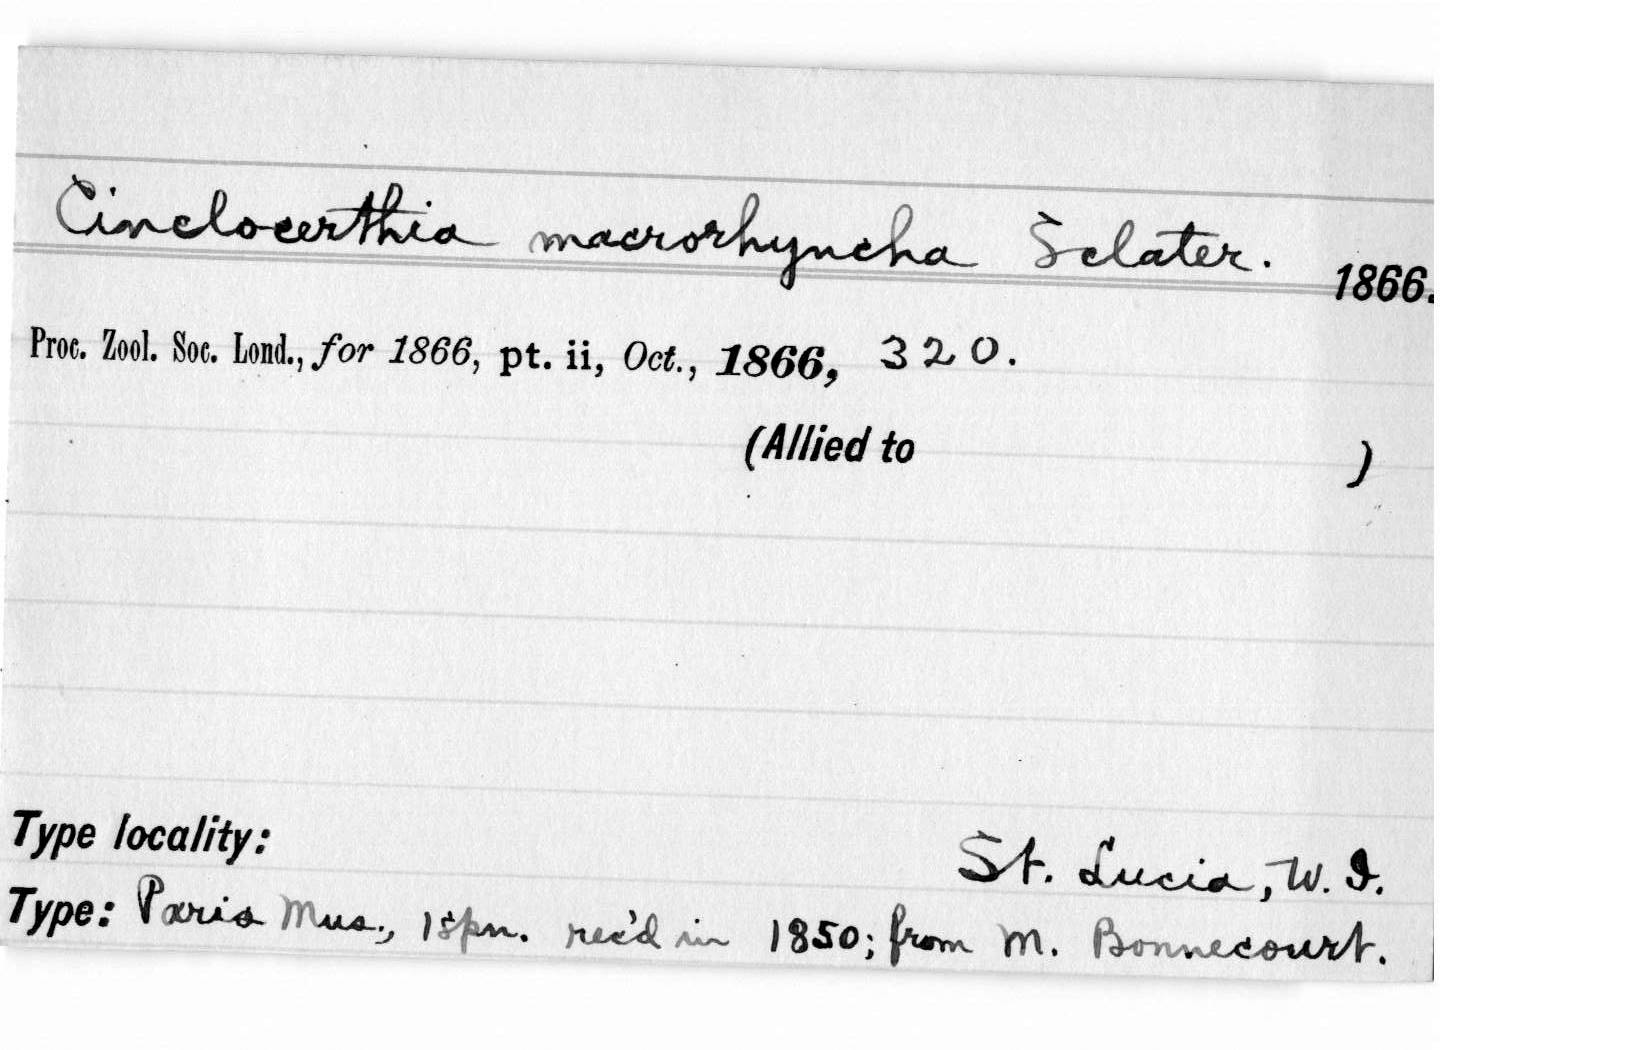 Cinclocerthia macrorhyncha Sclater. 1866.
Proc. Zool. Soc. Lond., for 1866, pt. ii, Oct., 1866, 320.
(Allied to )
Type locality: St. Lucia, W. I.
Type: Paris Mus., 1 spn. rec'd in 1850; from M. Bonnecourt.